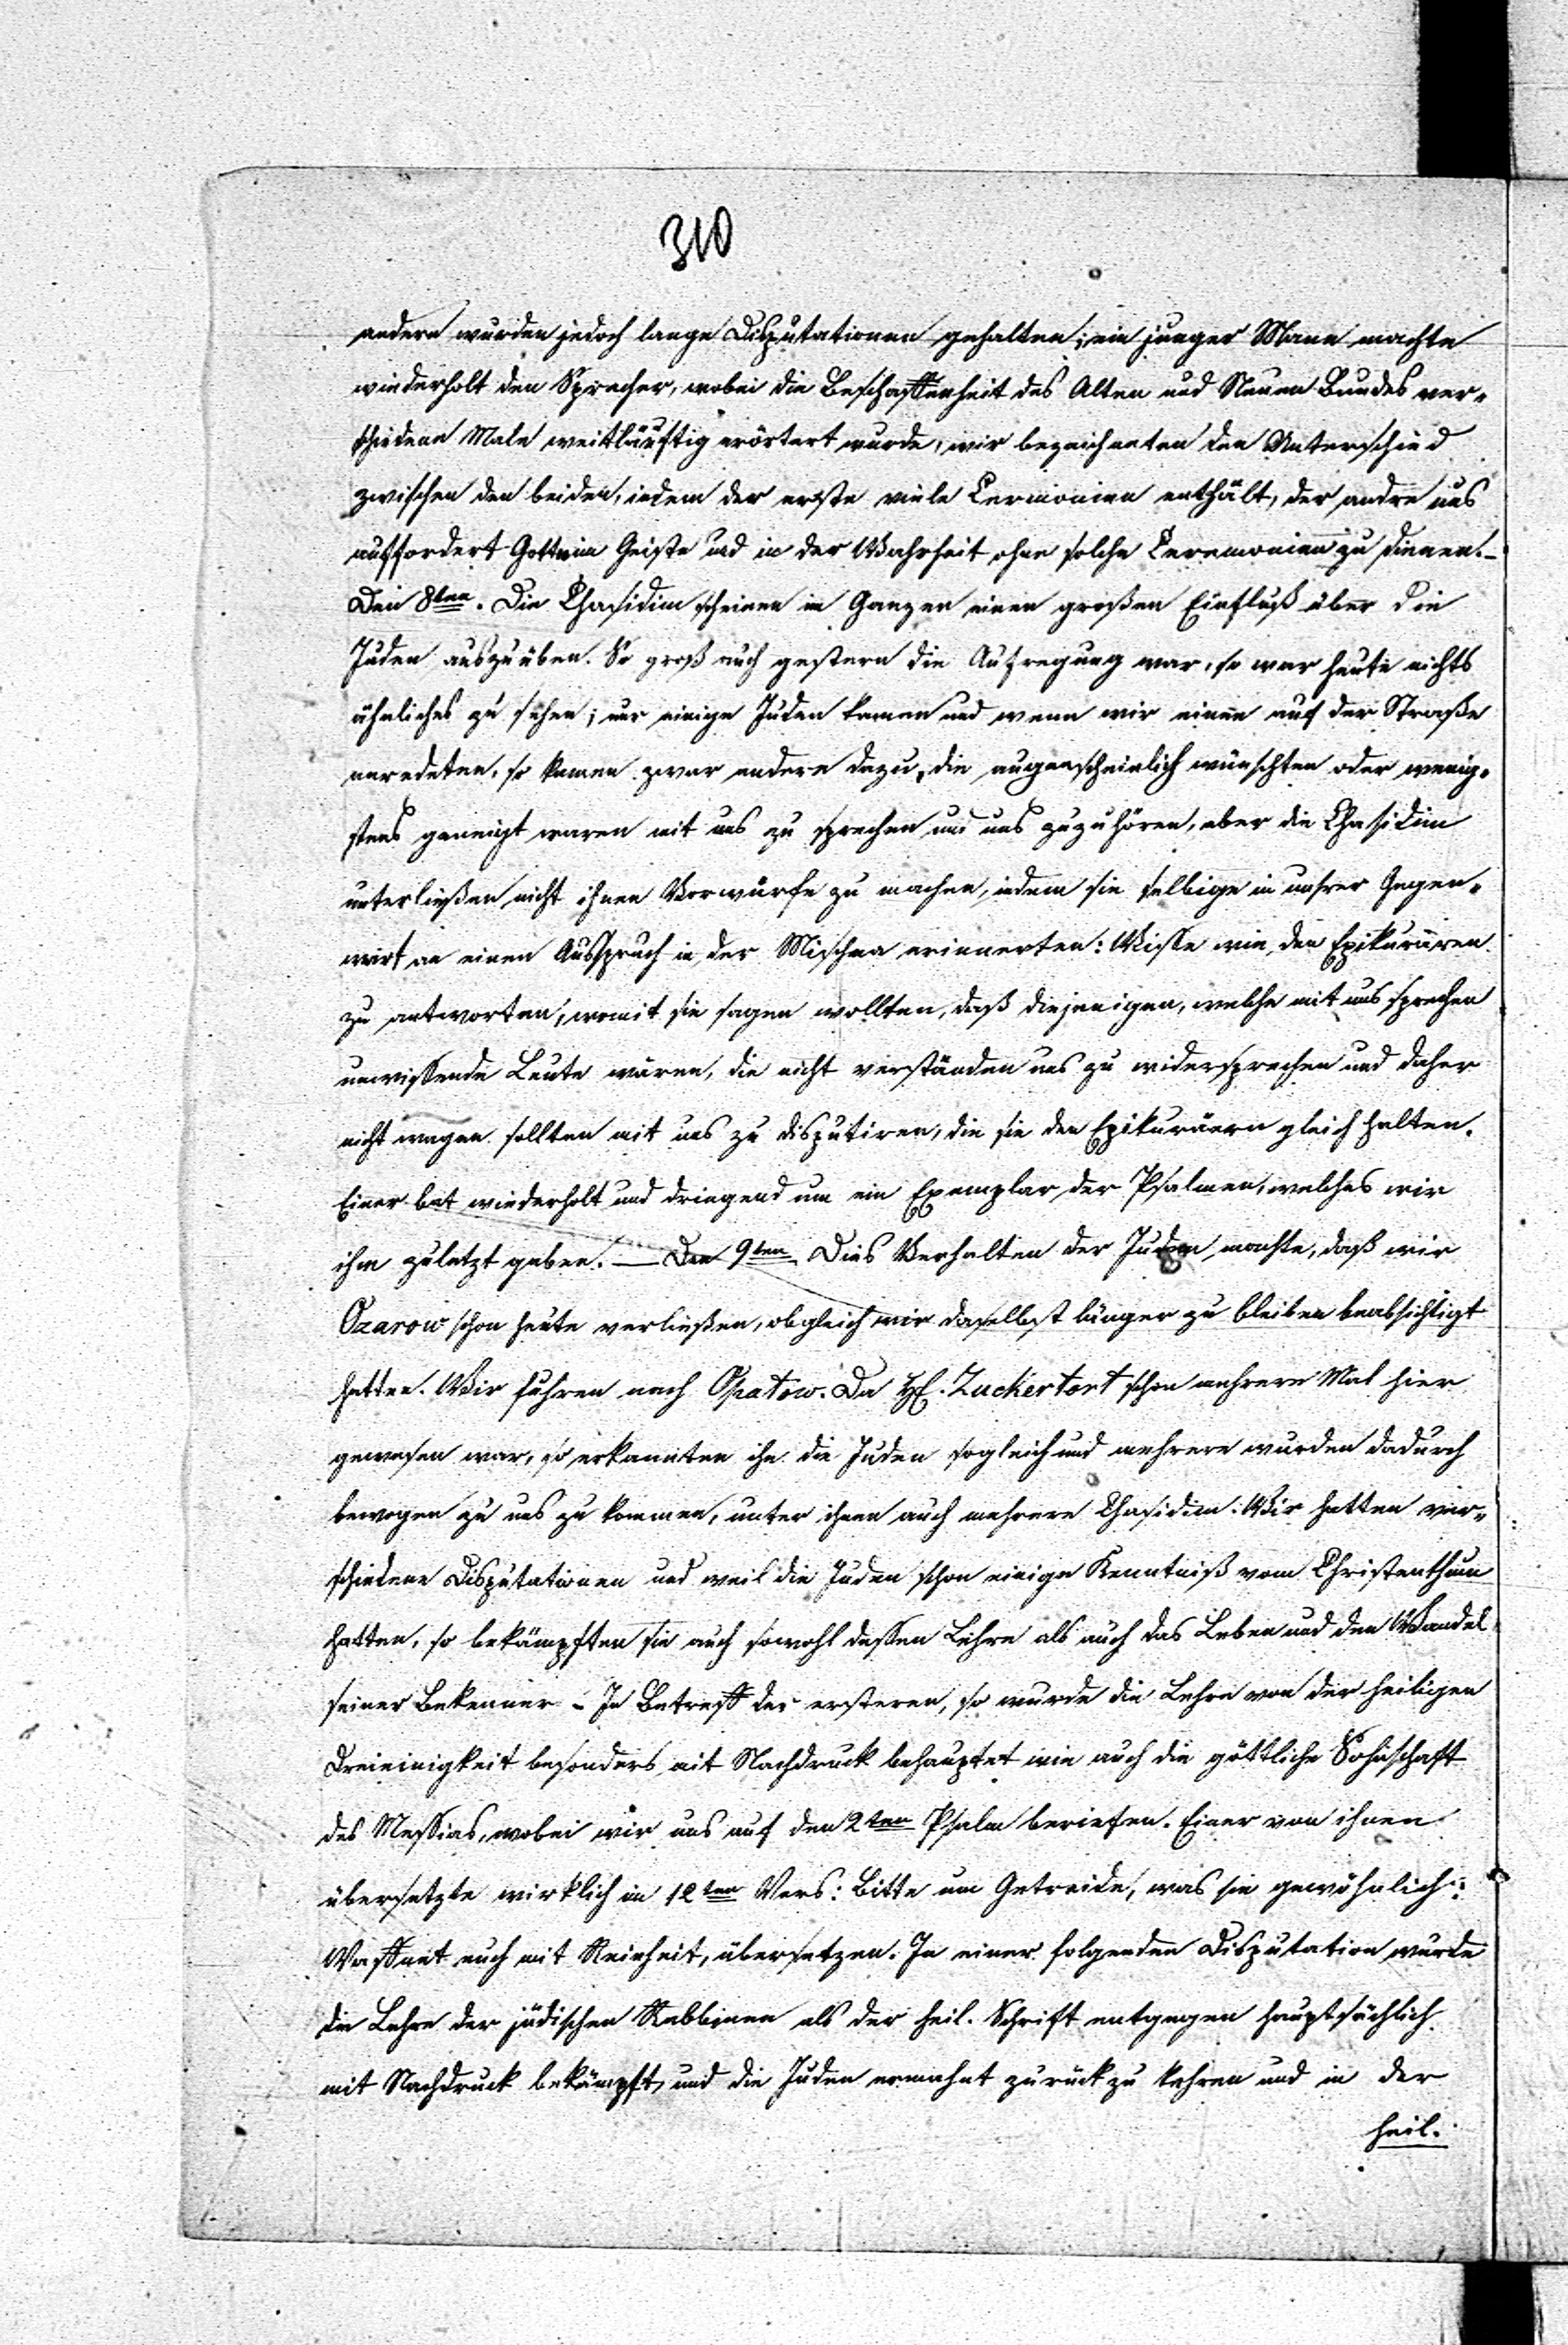 310
andern wurden jedoch lange Disputationen gehalten; ein junger Mann machte
wiederholt den Sprecher, wobei die Beschaffenheit des Alten und Neuen Bundes ver-
schiedene Male weitläuftig erörtert wurde; wir bezeichneten den Unterschied
zwischen den beiden, indem der erste viele Cermonien enthält, der andre uns
auffordert Gott im Geiste und in der Wahrheit ohne solche Ceremonien zu dienen.–
Den 8ten. Die Chasidim scheinen im Ganzen einen großen Einfluß über die
Juden auszuüben. So groß auch gestern die Aufregung war, so war heute nichts
ähnliches zu sehen; nur einige Juden kamen und wenn wir einen auf der Straße
anredeten, so kamen zwar andere dazu, die augenscheinlich wünschten oder wenig-
stens geneigt waren mit uns zu sprechen und uns zuzuhören, aber die Chasidim
unterließen nicht ihnen Vorwürfe zu machen, indem sie selbige in unsrer Gegen-
wart an einen Ausspruch in der Mischna erinnerten: Wisse wie den Epikuräern
zu antworten, womit sie sagen wollten, daß diejenigen, welche mit uns sprechen
unwissende Leute wären, die nicht verständen uns zu widersprechen und daher
nicht wagen sollten mit uns zu disputiren, die sie den Epikuräern gleich halten.
Einer bat wiederholt und dringend um ein Exemplar der Psalmen, welches wir
ihm zuletzt gaben. — Den 9ten Dies Verhalten der Juden machte, daß wir
Ozarow schon heute verließen, obgleich wir daselbst länger zu bleiben beabsichtigt
hatten. Wir fuhren nach Opatow. Da H. Zuckertort schon mehrere Mal hier
gewesen war, so erkannten ihn die Juden sogleich und mehrere wurden dadurch
bewogen zu uns zu kommen, unter ihnen auch mehrere Chasidim. Wir hatten ver-
schiedene Disputationen und weil die Juden schon einige Kenntniß vom Christenthum
hatten, so bekämpften sie auch sowohl dessen Lehre als auch das Leben und den Wandel
seiner Bekenner – In Betreff der ersteren, so wurde die Lehre von der heiligen
Dreieinigkeit besonders mit Nachdruck behauptet wie auch die göttliche Sohnschaft
des Messias, wobei wir uns auf den 2ten Psalm beriefen. Einer von ihnen
übersetzte wirklich im 12ten Vers: Bitte um Getreide, was sie gewöhnlich:
Waffnet euch mit Reinheit, übersetzen. In einer folgenden Disputation wurde
die Lehre der jüdischen Rabbinen als der heil. Schrift entgegen hauptsächlich
mit Nachdruck bekämpft, und die Juden ermahnt zurück zu kehren und in der
heil.